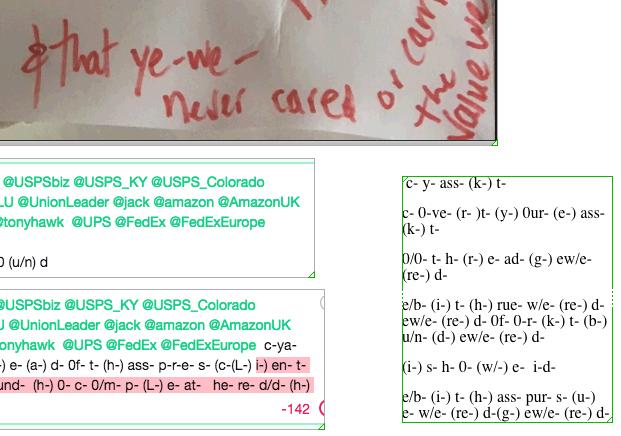 & that ye-we-
never cared or carr
the
value we
@USPSbiz @USPS_KY @USPS_Colorado
LU @UnionLeader @jack @amazon @AmazonUK
@tonyhawk @UPS @FedEx @FedExEurope
0 (u/n) d
@USPSbiz @USPS_KY @USPS_Colorado
U @UnionLeader @jack @amazon @AmazonUK
onyhawk @UPS @FedEx @FedExEurope c-ya-
-) e- (a-) d- 0f- t- (h-) ass- p-r-e- s- (c-(L-) i-) en- t-
und- (h-) 0- c- 0/m- p- (L-) e- at- he- re- d/d- (h-)
-142
c- y- ass- (k-) t-
c- 0-ve- (r- )t- (y-) 0ur- (e-) ass-
(k-) t-
0/0- t- h- (r-) e- ad- (g-) ew/e-
(re-) d-
e/b- (i-) t- (h-) rue- w/e- (re-) d-
ew/e- (re-) d- 0f- 0-r- (k-) t- (b-)
u/n- (d-) ew/e- (re-) d-
(i-) s- h- 0- (w/-) e- i-d-
e/b- (i-) t- (h-) ass- pur- s- (u-)
e- w/e- (re-) d-(g-) ew/e- (re-) d-